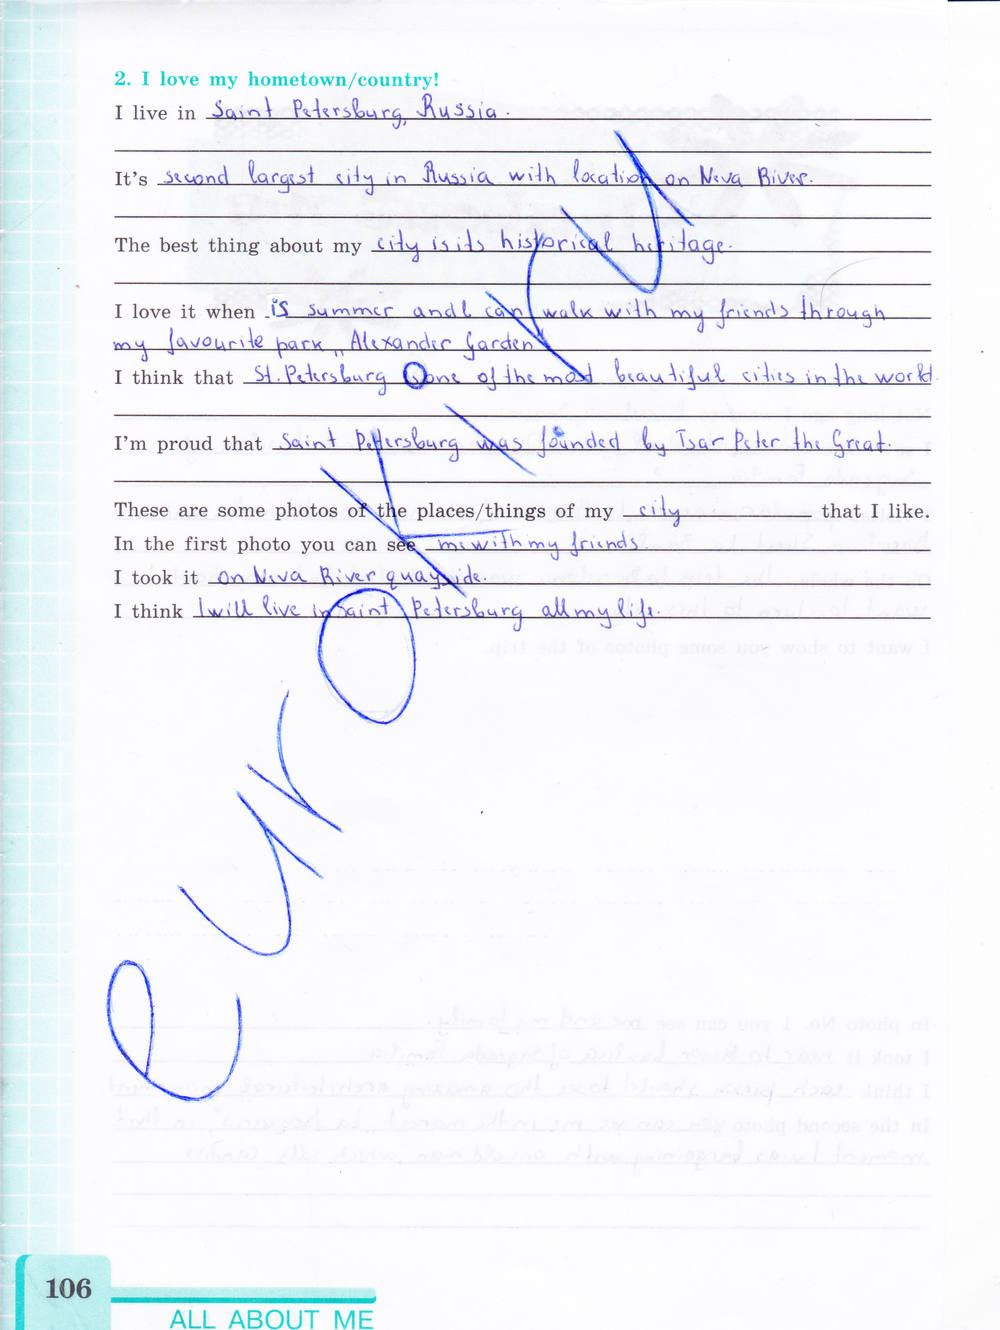 2. I love my hometown/country!
I live in Saint Petersburg, Russia.
It's second largest city in Russia with location on Neva River.
The best thing about my city is its historical heritage.
I love it when is summer and I can walk with my friends through
my favourite park „Alexander Garden"
I think that St. Petersburg one of the most beautiful cities in the world.
I'm proud that Saint Petersburg was founded by Tsar Peter the Great.
These are some photos of the places/things of my city that I like.
In the first photo you can see me with my friends.
I took it on Neva River quayside.
I think I will live in Saint Petersburg all my life.
eurokI.ru
106
ALL ABOUT ME